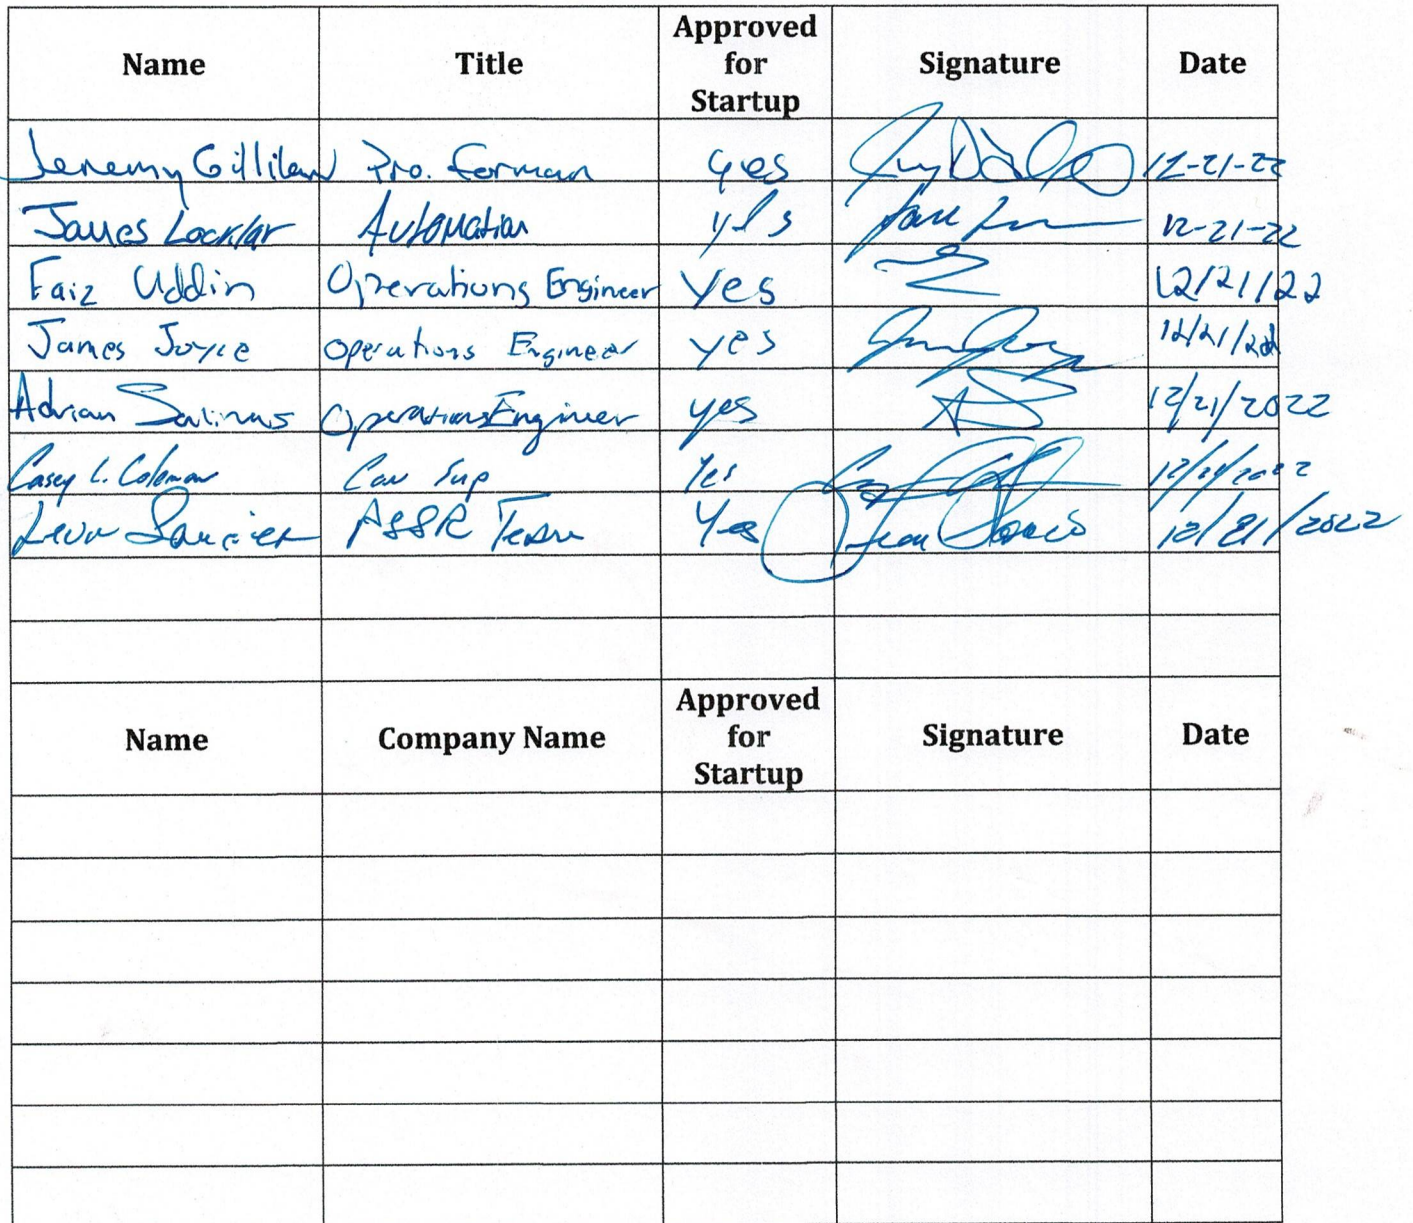 Name Title Approved for Startup Signature Date
Jeremy Gillilan Pro. Forman yes 12-21-22
James Locklar Automation yes 12-21-22
Faiz Uddin Operations Engineer Yes 12/21/22
James Joyce Operations Engineer yes 12/21/22
Adrian Salinas Operations Engineer yes 12/21/2022
Casey L. Coleman Yes 12/21/2022
Team Yes 12/21/2022
Name Company Name Approved for Startup Signature Date